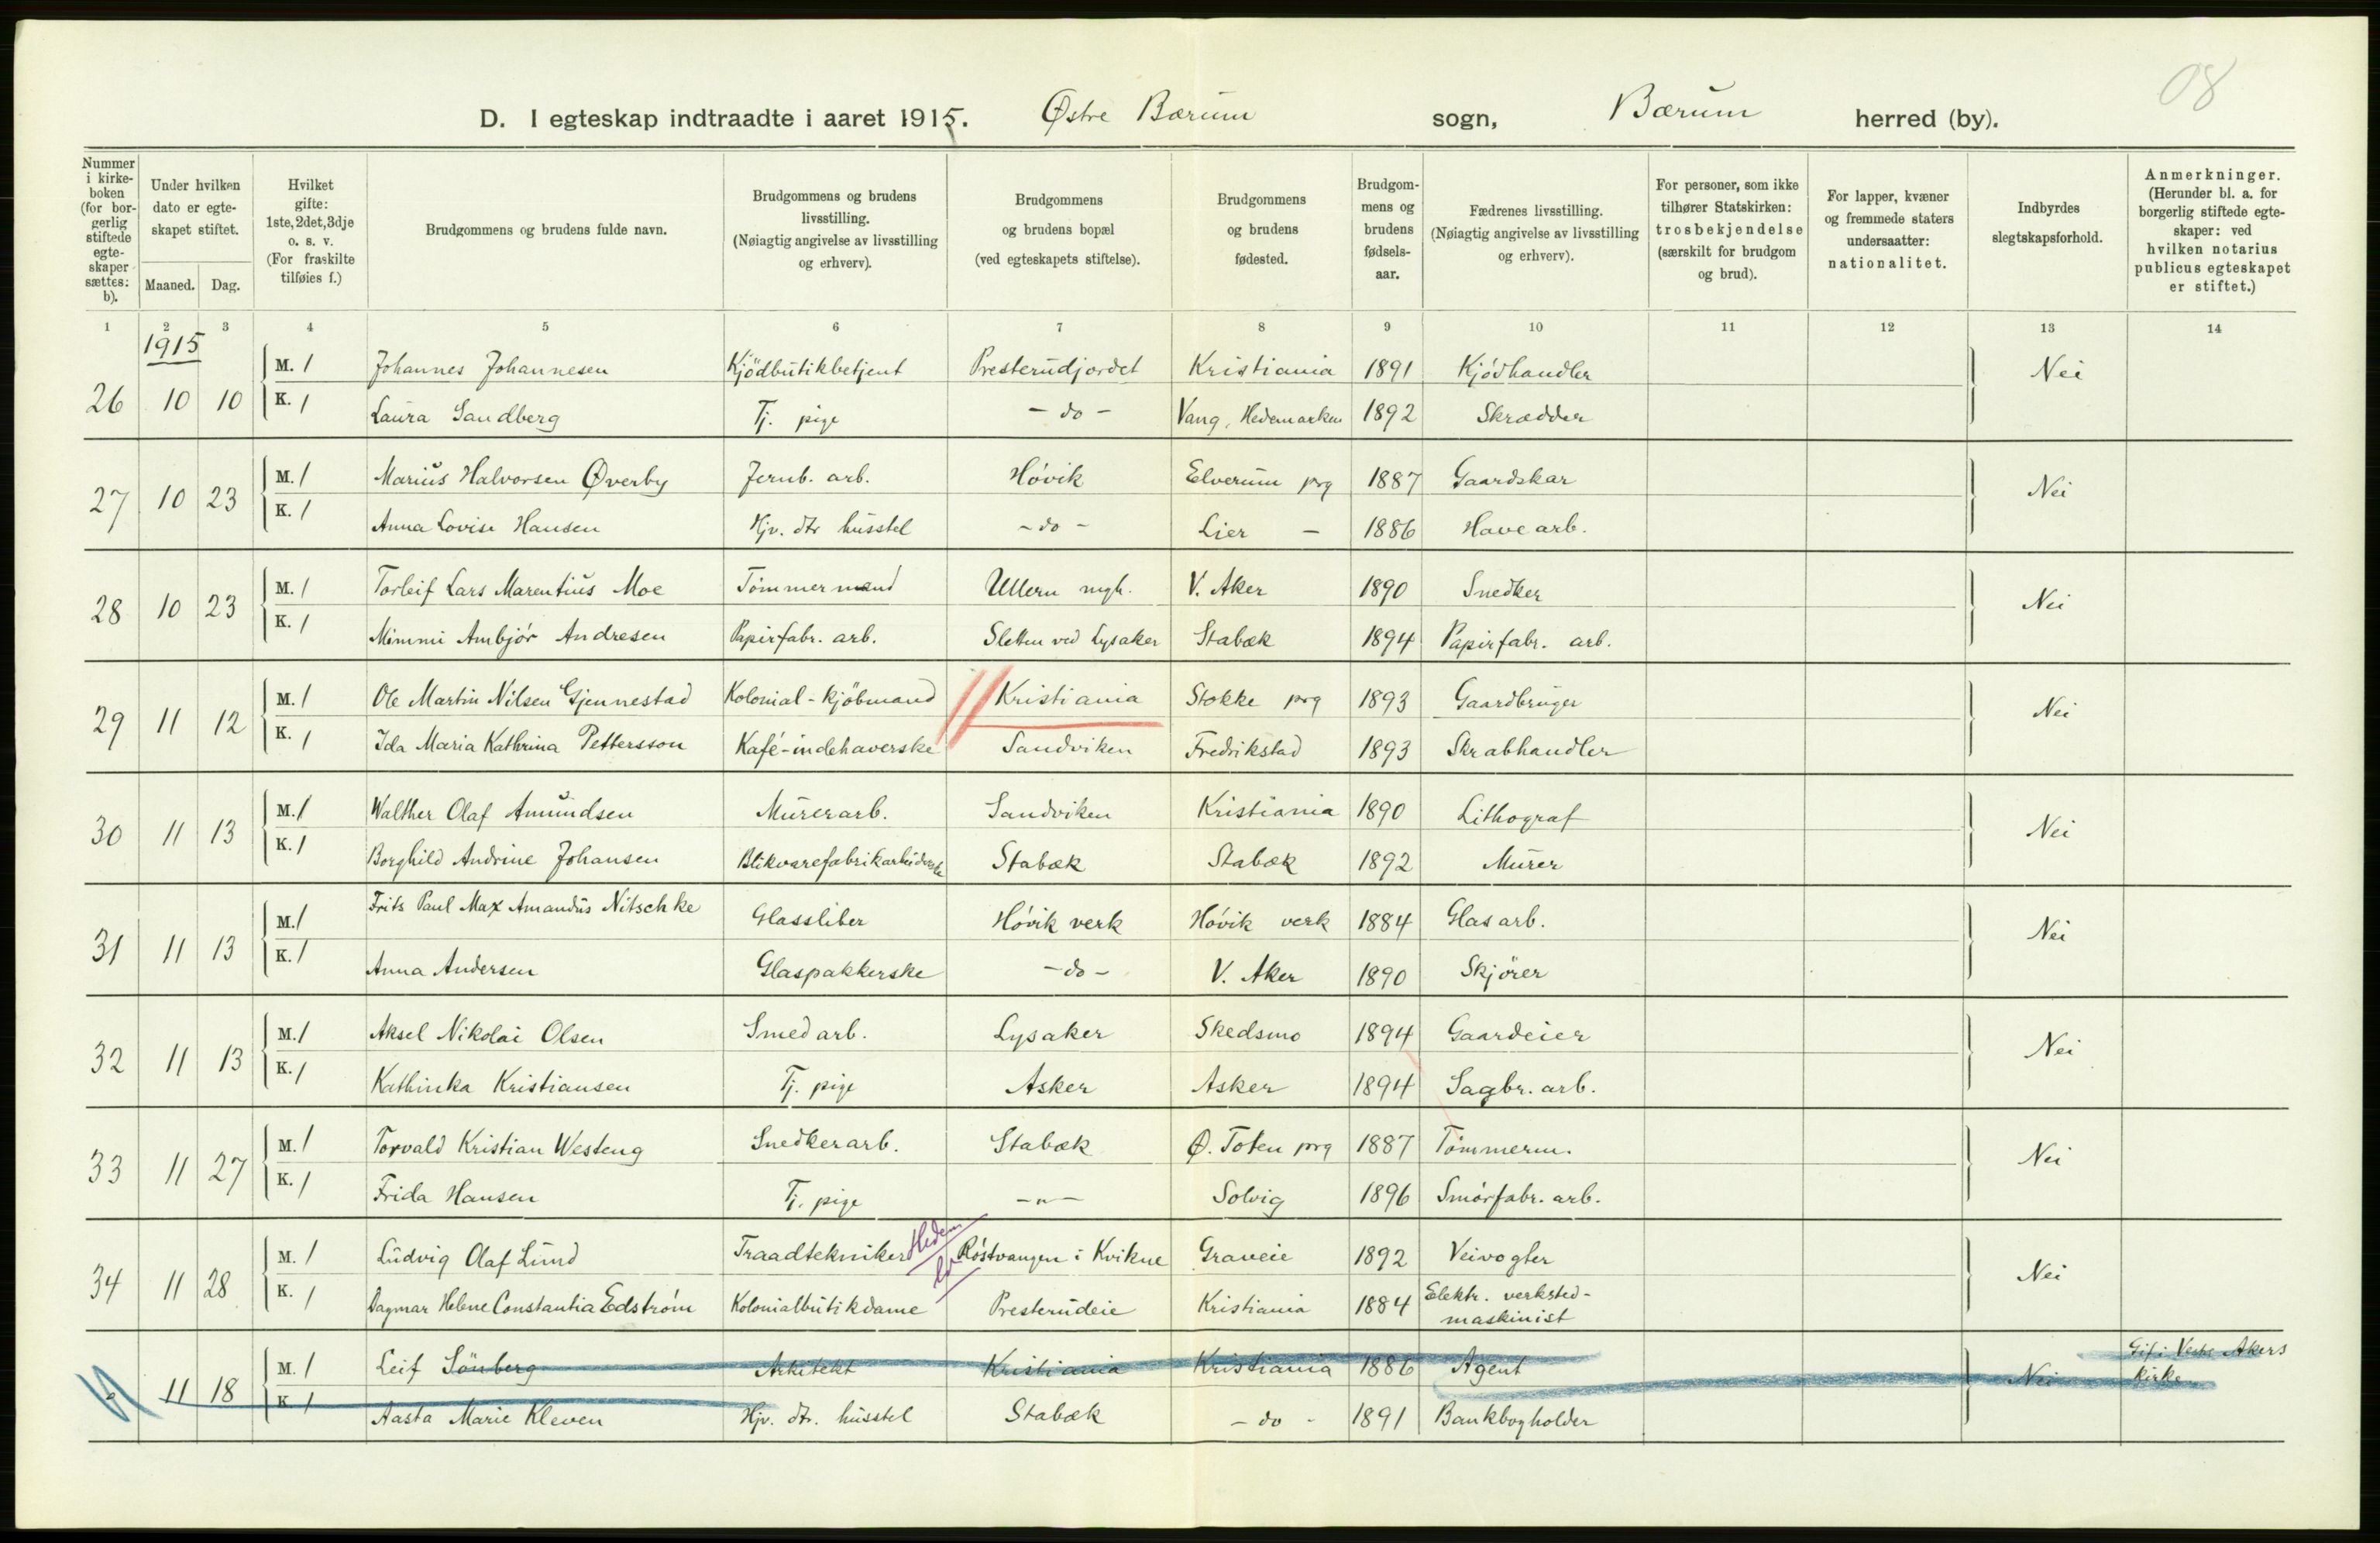 08
D. I egteskap indtraadte i aaret 1915. Østre Bærum sogn, Bærum herred (by).
Nummer i kirke-boken (for bor-gerlig stiftede egte-skaper sættes: b).
Under hvilken dato er egte-skapet stiftet.
Maaned. Dag.
Hvilket gifte: 1ste, 2det, 3dje o. s. v. (For fraskilte tilføies f.)
Brudgommens og brudens fulde navn.
Brudgommens og brudens livsstilling. (Nøiagtig angivelse av livsstilling og erhverv).
Brudgommens og brudens bopæl (ved egteskapets stiftelse).
Brudgommens og brudens fødested.
Brudgom-mens og brudens fødsels-aar.
Fædrenes livsstilling. (Nøiagtig angivelse av livsstilling og erhverv).
For personer, som ikke tilhører Statskirken: trosbekjendelse (særskilt for brudgom og brud).
For lapper, kvæner og fremmede staters undersaatter: nationalitet.
Indbyrdes slegtskapsforhold.
Anmerkninger. (Herunder bl. a. for borgerlig stiftede egte-skaper: ved hvilken notarius publicus egteskapet er stiftet.)
1 2 3 4 5 6 7 8 9 10 11 12 13 14
1915
26 10 10 M. 1 Johannes Johannesen Kjödbutikbetjent Presterudjordet Kristiania 1891 Kjödhandler Nei
K. 1 Laura Sandberg Tj. pige - do - Vang, Hedemarken 1892 Skrædder
27 10 23 M. 1 Marius Halvorsen Øverby Jernb. arb. Hövik Elverum prg 1887 Gaardskar Nei
K. 1 Anna Lovise Hansen Hjv. dtr husstel - do - Lier - 1886 Havearb.
28 10 23 M. 1 Torleif Lars Marentius Moe Tömmermand Ullern mgh. V. Aker 1890 Snedker Nei
K. 1 Mimmi Ambjór Andresen Papirfabr. arb. Sletten ved Lysaker Stabæk 1894 Papirfabr. arb.
29 11 12 M. 1 Ole Martin Nilsen Gjennestad Kolonial-kjöbmand Kristiania Stokke prg 1893 Gaardbruger Nei
K. 1 Ida Maria Kathrina Pettersson Kafé-indehaverske Sandviken Fredrikstad 1893 Skrabhandler
30 11 13 M. 1 Walther Olaf Amundsen Murerarb. Sandviken Kristiania 1890 Lithograf Nei
K. 1 Borghild Andrine Johansen Blikvarefabrikarbeiderske Stabæk Stabæk 1892 Murer
31 11 13 M. 1 Frits Paul Max Amandus Nitschke Glassliber Hövik verk Hövik verk 1884 Glasarb. Nei
K. 1 Anna Andersen Glaspakkerske - do - V. Aker 1890 Skjörer
32 11 13 M. 1 Aksel Nikolai Olsen Smedarb. Lysaker Skedsmo 1894 Gaardeier Nei
K. 1 Kathinka Kristiansen Tj. pige Asker Asker 1894 Sagbr. arb.
33 11 27 M. 1 Torvald Kristian Westeng Snedkerarb. Stabæk Ø. Toten prg 1887 Tömmerm. Nei
K. 1 Frida Hansen Tj. pige -"- Solvig 1896 Smörfabr. arb.
34 11 28 M. 1 Ludvig Olaf Lund Traadtekniker Hedem Röstvangen i Kvikne Graveie 1892 Veivogter Nei
K. 1 Dagmar Helene Constantia Edström Kolonialbutikdame Presterudeie Kristiania 1884 Elektr. verksted-maskinist
11 18 M. 1 Leif Sönberg Arkitekt Kristiania Kristiania 1886 Agent Nei Gift i Vestre Akers kirke.
K. 1 Aasta Marie Kleven Hjv. dtr. husstel Stabæk - do - 1891 Bankbogholder